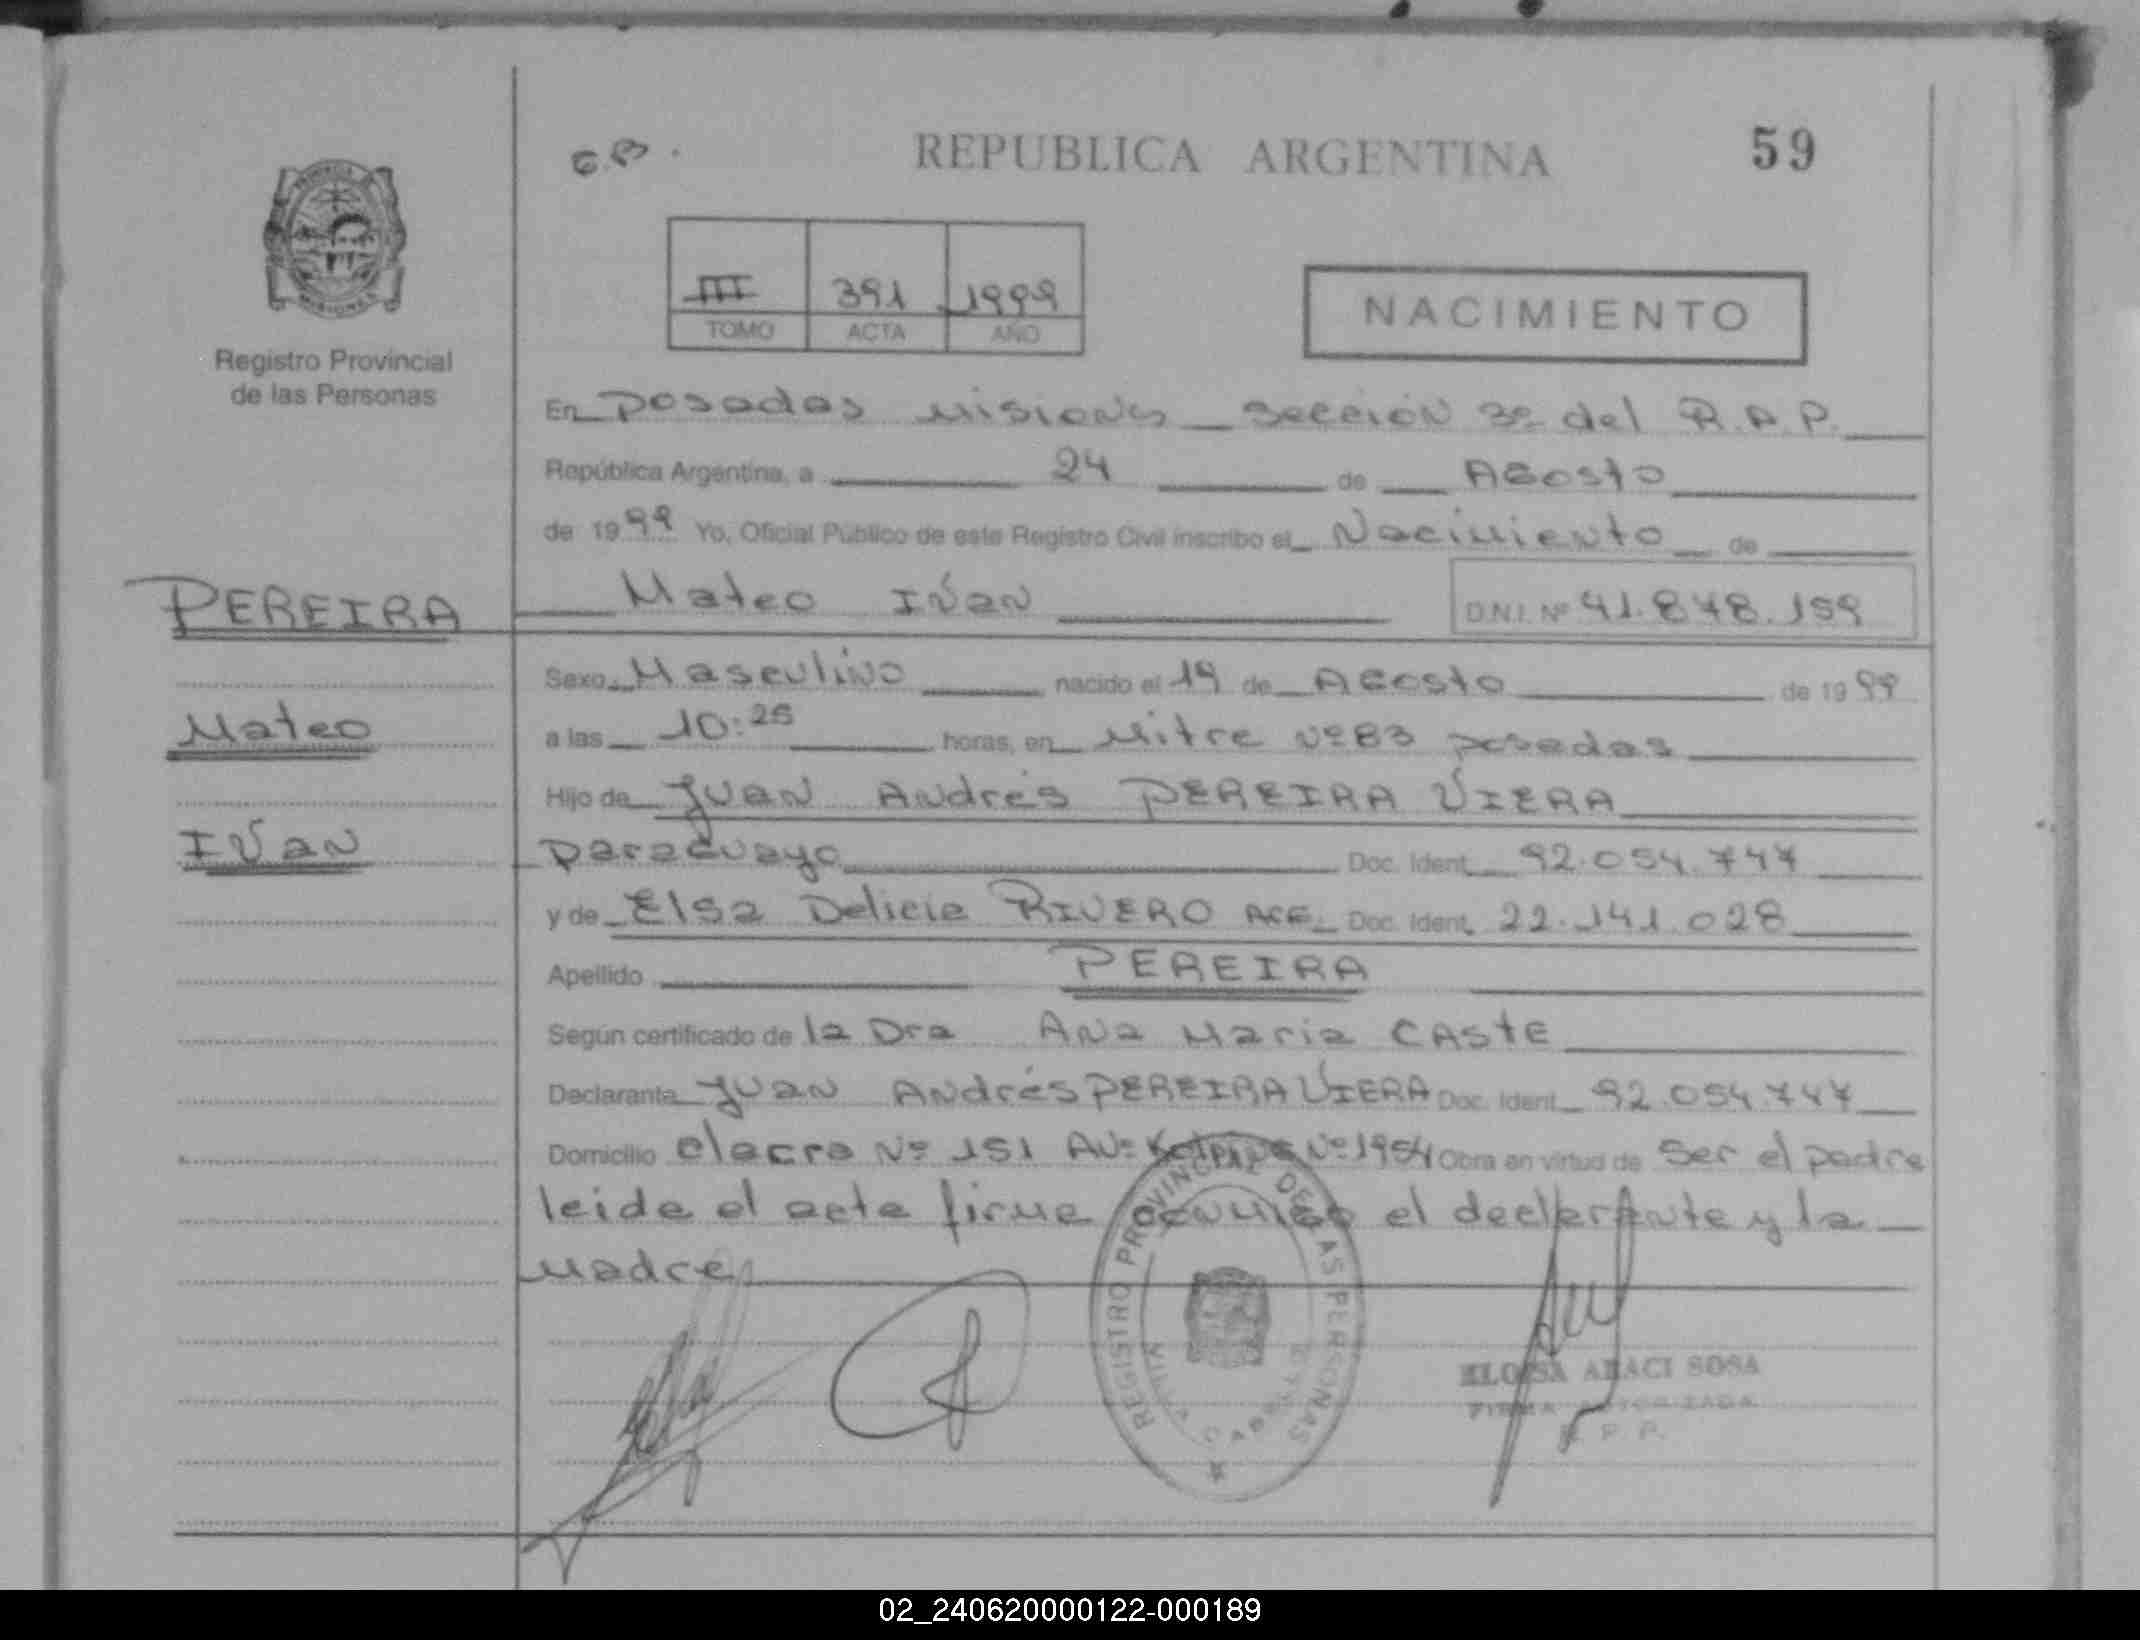 G.B.
REPUBLICA ARGENTINA
59
III 391 1999
TOMO ACTA AÑO
NACIMIENTO
Registro Provincial
de las Personas
En Posadas Misiones Sección 3ª del R.P.P.
República Argentina, a 24 de Agosto
de 1999 Yo, Oficial Público de este Registro Civil inscribo el Nacimiento de
PEREIRA
Mateo Iván D.N.I. Nº 41.878.159
Sexo Masculino nacido el 19 de Agosto de 1999
Mateo
a las 10:25 horas, en Mitre Nº 83 posadas
Hijo de Juan Andrés PEREIRA VIERA
Iván
paraguayo Doc. Ident. 92.054.747
y de Elsa Delicia RIVERO ARG. Doc. Ident. 22.141.028
Apellido PEREIRA
Según certificado de la Dra Ana Maria CASTE
Declarante Juan Andrés PEREIRA VIERA Doc. Ident. 92.054.747
Domicilio chacra Nº 151 Avº Nº 1954 Obra en virtud de ser el padre
leida el acta firma conmigo el declarante y la
madre
REGISTRO PROVINCIAL DE LAS PERSONAS
ELOISA ARACI SOSA
FIRMA AUTORIZADA
R. P. P.
02_240620000122-000189